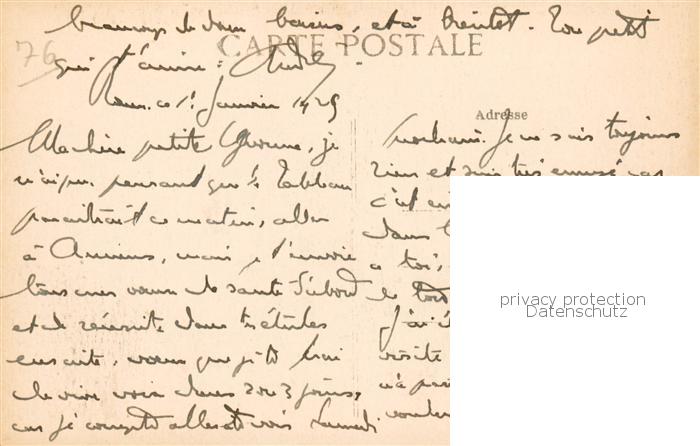 beaucoup de doux baisers, et à bientôt. Ton petit
CARTE POSTALE
76
qui t'aime : André.
ce 1er Janvier 1929
Adresse
Ma chère petite Yvonne, je
prochain. Je ne sais toujours
n'ai pu, pensant que le tableau
rien et suis très ennuyé car
paraîtrait ce matin, aller
c'est
à Amiens, mais je t'envoie
dans
à toi,
tous mes vœux de santé d'abord
de
et de réussite dans tes études
J'ai
ensuite, vœux que je te
visite
de vive voix dans 2 ou 3 jours,
n'a
car je compte aller te voir Samedi
privacy protection
Datenschutz